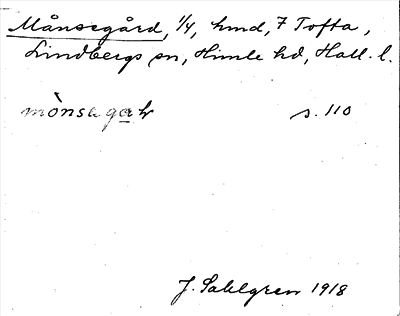 Månsegård, 1/4, hmd, 7 Tofta,
Lindbergs sn, Himle hd, Hall. l.
mònsagaɽ s. 110
J. Sahlgren 1918